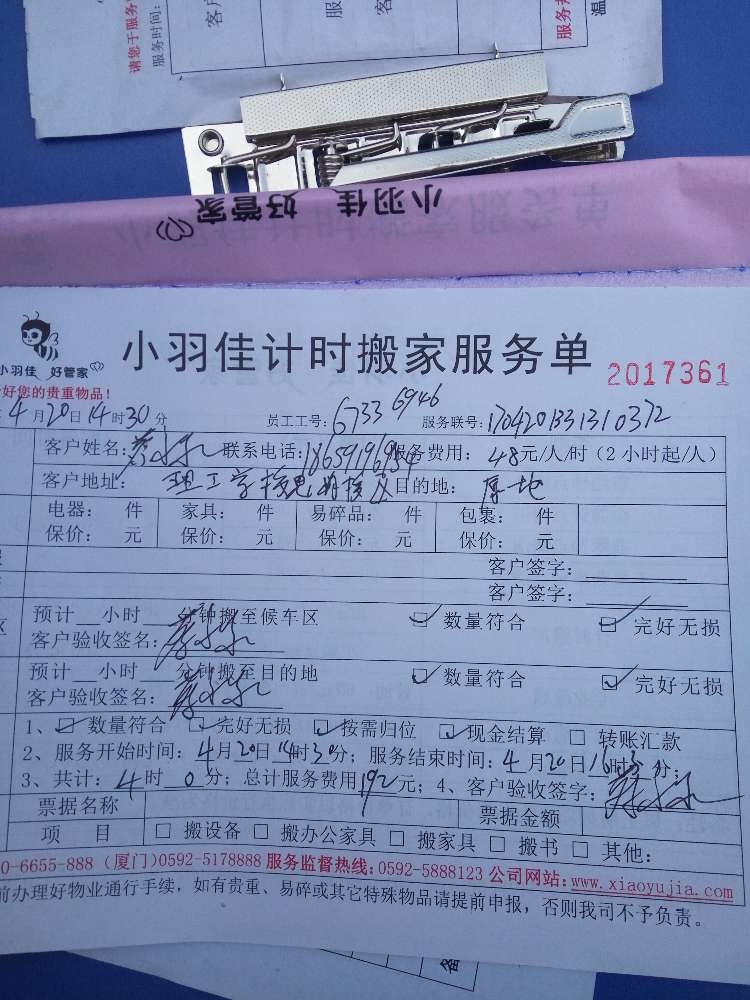 请您于服务
服务时间:
客户
服
客
服务
温
小羽佳 好管家
小羽佳 好管家
小羽佳计时搬家服务单
2017361
好您的贵重物品!
4月20日14时30分 员工工号:6733 6946 服务联号:1704201331310372
客户姓名: 联系电话: 服务费用: 48元/人/时(2小时起/人)
客户地址: 理工学校思明校区 目的地: 厚地
电器: 件 家具: 件 易碎品: 件 包裹: 件
保价: 元 保价: 元 保价: 元 保价: 元
客户签字:
客户签字:
预计__小时__分钟搬至候车区 ☑ 数量符合 ☑ 完好无损
客户验收签名:
预计__小时__分钟搬至目的地 ☑ 数量符合 ☑ 完好无损
客户验收签名:
1、☑ 数量符合 ☑ 完好无损 ☑ 按需归位 ☑ 现金结算 □ 转账汇款
2、服务开始时间: 4月20日14时30分; 服务结束时间: 4月20日16时30分;
3、共计: 4时 0分; 总计服务费用192元; 4、客户验收签字:
票据名称 票据金额
项 目 □ 搬设备 □ 搬办公家具 □ 搬家具 □ 搬书 □ 其他:
0-6655-888 (厦门)0592-5178888 服务监督热线:0592-5888123 公司网站:www.xiaoyujia.com
前办理好物业通行手续, 如有贵重、易碎或其它特殊物品请提前申报, 否则我司不予负责。